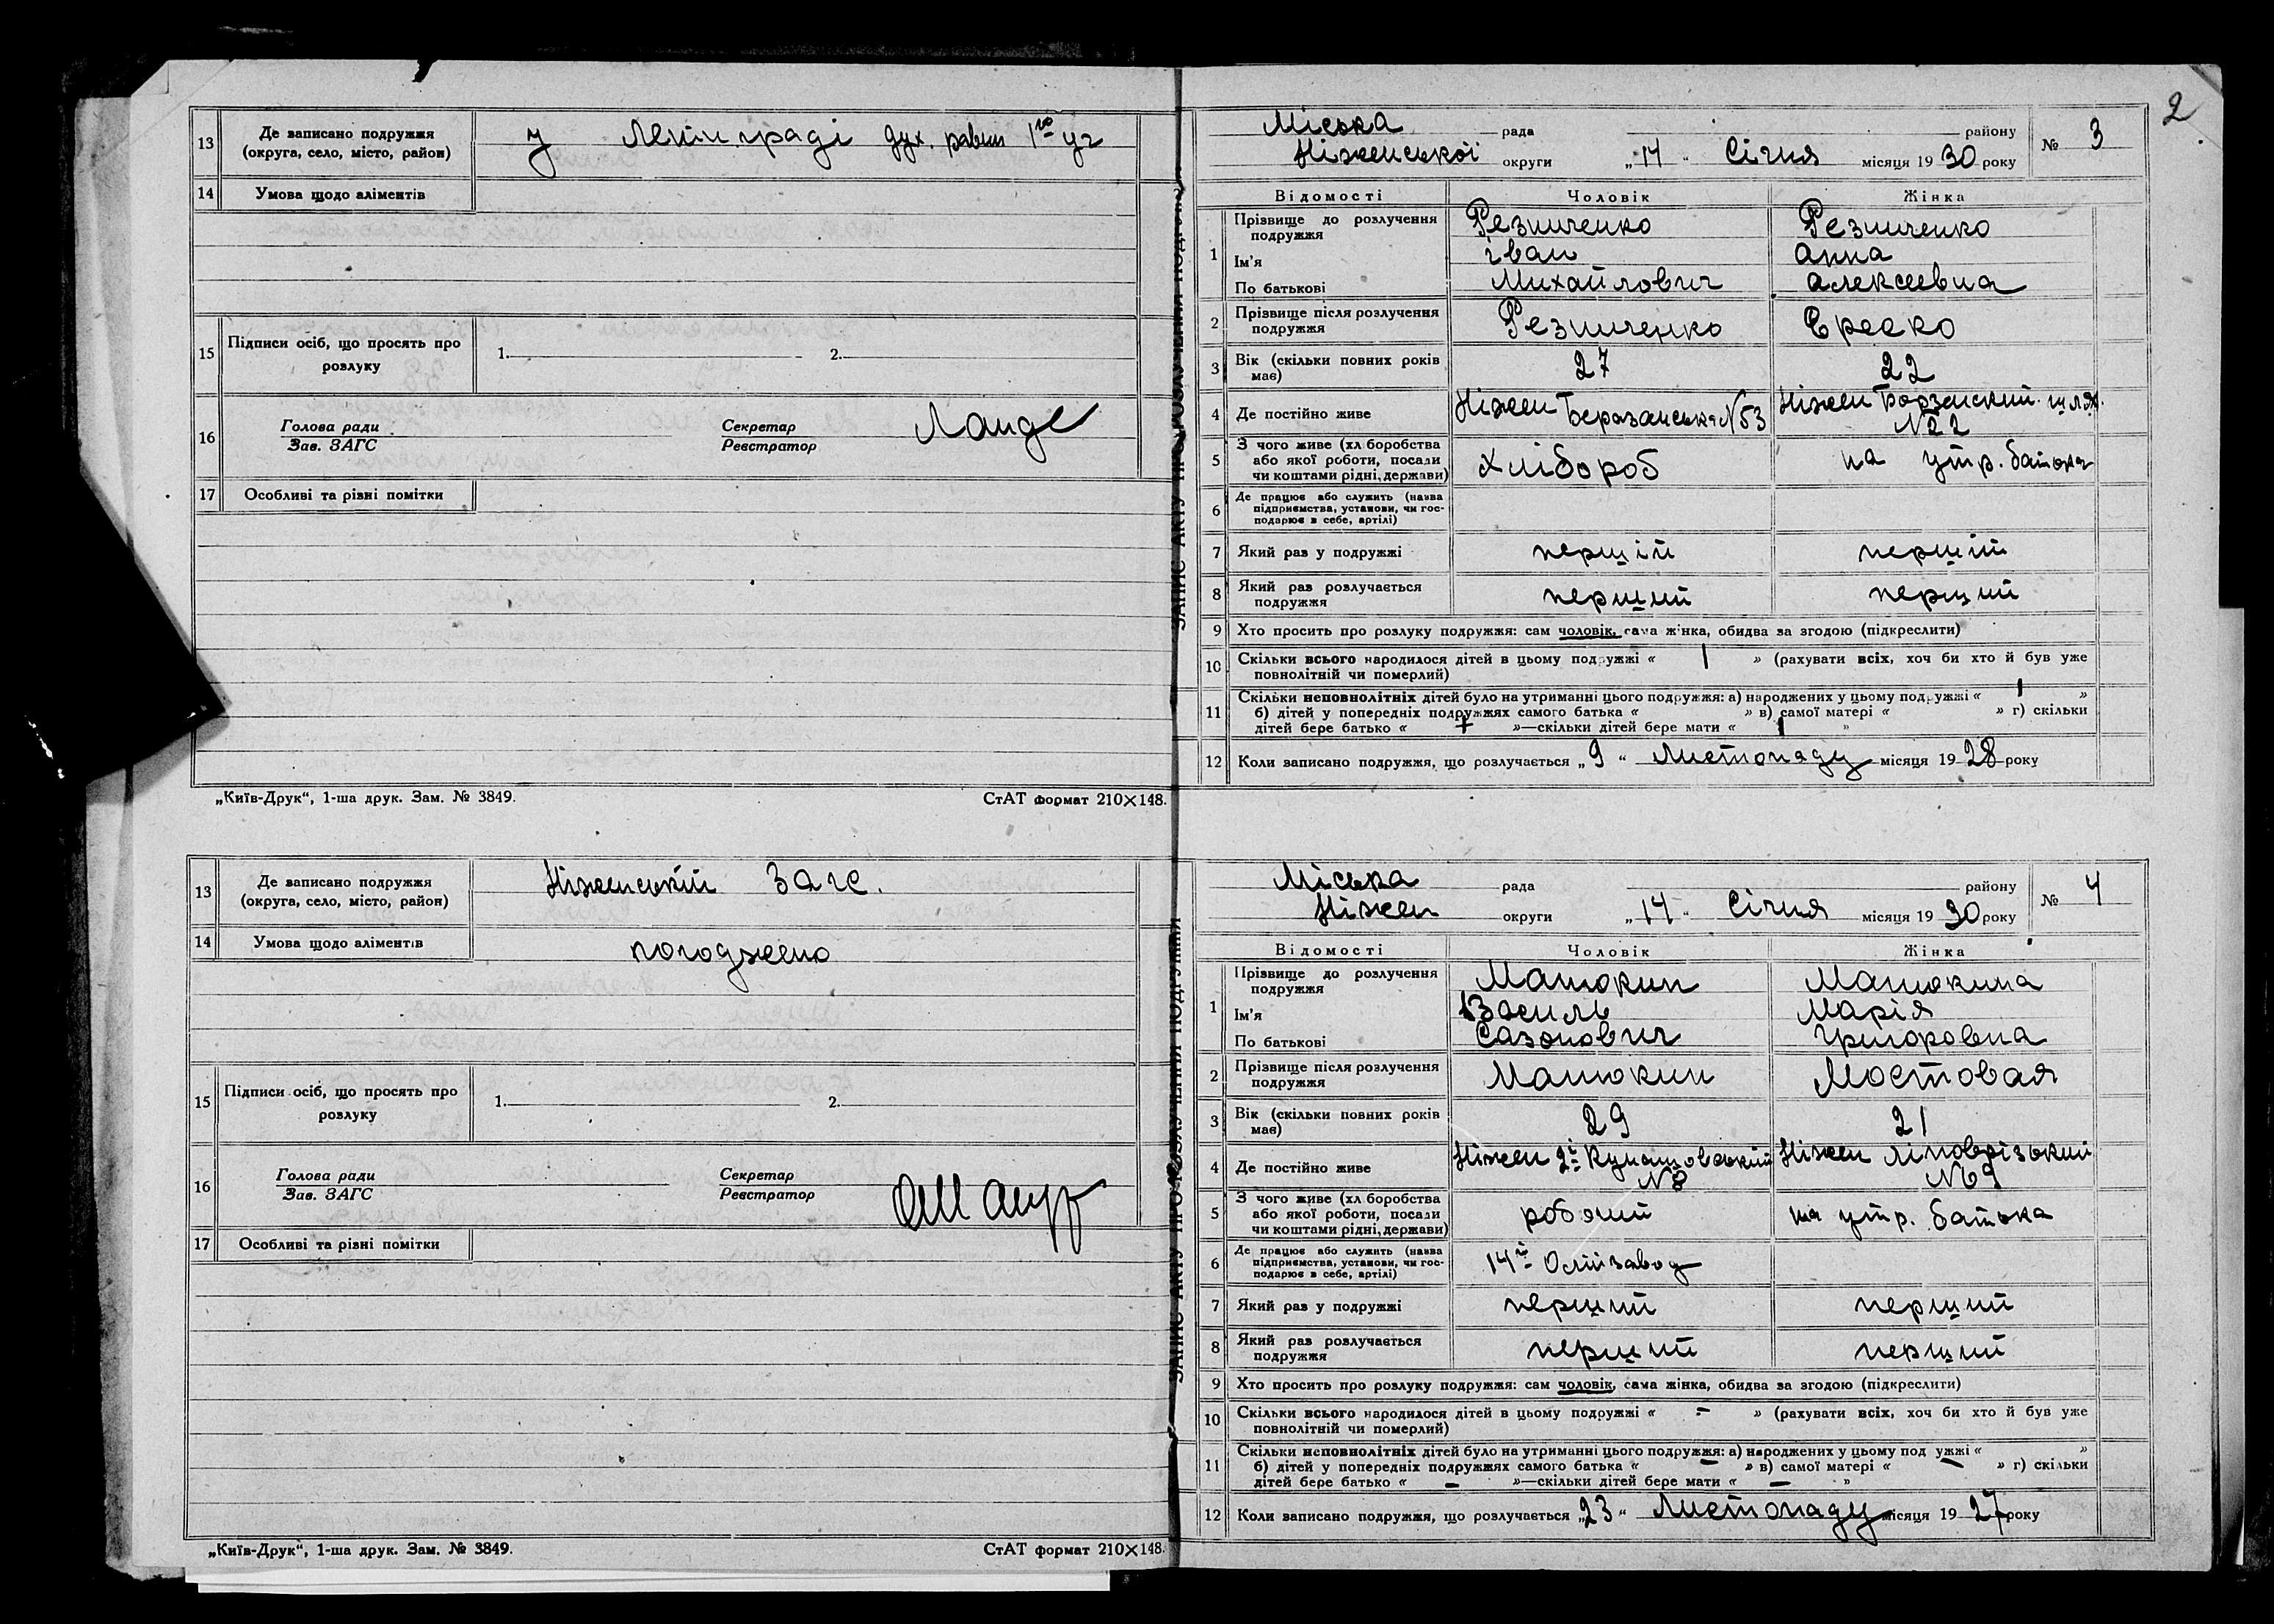 13 Де записано подружжя (округа, село, місто, район) у Ленінграді дух. равин 1го уч
14 Умова щодо аліментів
15 Підписи осіб, що просять про розлуку 1. 2.
16 Голова ради Секретар Ланде
Зав. ЗАГС Реєстратор
17 Особливі та різні помітки
„Київ-Друк“, 1-ша друк. Зам. № 3849. СтАТ формат 210×148.
13 Де записано подружжя (округа, село, місто, район) Ніженський Загс.
14 Умова щодо аліментів погоджено
15 Підписи осіб, що просять про розлуку 1. 2.
16 Голова ради Секретар
Зав. ЗАГС Реєстратор
17 Особливі та різні помітки
„Київ-Друк“, 1-ша друк. Зам. № 3849. СтАТ формат 210×148.
ЗАПИС АКТУ ПРО РОЗЛУЧЕННЯ ПОДРУЖЖЯ
2
Міська рада району № 3
Ніженської округи „14“ Січня місяця 1930 року
Відомості Чоловік Жінка
1 Прізвище до розлучення подружжя Резниченко Резниченко
Ім'я Іван Анна
По батькові Михайлович Алексеевна
2 Прізвище після розлучення подружжя Резниченко Ереско
3 Вік (скільки повних років має) 27 22
4 Де постійно живе Ніжен Беразанська N53 Ніжен Борзенский шлях. N22
5 З чого живе (хліборобства або якої роботи, посади чи коштами рідні, держави) Хлібороб на утр. батька
6 Де працює або служить (назва підприємства, установи, чи господарює в себе, артілі)
7 Який раз у подружжі першій першій
8 Який раз розлучається подружжя перший перший
9 Хто просить про розлуку подружжя: сам чоловік, сама жінка, обидва за згодою (підкреслити)
10 Скільки всього народилося дітей в цьому подружжі « 1 » (рахувати всіх, хоч би хто й був уже
повнолітній чи померлий)
11 Скільки неповнолітніх дітей було на утриманні цього подружжя: а) народжених у цьому подружжі « 1 »
б) дітей у попередніх подружжях самого батька « » в) самої матері « » г) скільки
дітей бере батько « + »—скільки дітей бере мати « 1 »
12 Коли записано подружжя, що розлучається „9“ Листопаду місяця 1928 року
ЗАПИС АКТУ ПРО РОЗЛУЧЕННЯ ПОДРУЖЖЯ
Міська рада району № 4
Ніжен округи „14“ Січня місяця 1930 року
Відомості Чоловік Жінка
1 Прізвище до розлучення подружжя Матюкин Матюкина
Ім'я Василь Марія
По батькові Сазонович Григоровна
2 Прізвище після розлучення подружжя Матюкин Мостовая
3 Вік (скільки повних років має) 29 21
4 Де постійно живе Ніжен 2й Кунашовський N8 Ніжен Ліповрізький N69
5 З чого живе (хліборобства або якої роботи, посади чи коштами рідні, держави) робочий на утр. батька
6 Де працює або служить (назва підприємства, установи, чи господарює в себе, артілі) 14й Олійзавод
7 Який раз у подружжі перший перший
8 Який раз розлучається подружжя перший перший
9 Хто просить про розлуку подружжя: сам чоловік, сама жінка, обидва за згодою (підкреслити)
10 Скільки всього народилося дітей в цьому подружжі « - » (рахувати всіх, хоч би хто й був уже
повнолітній чи померлий)
11 Скільки неповнолітніх дітей було на утриманні цього подружжя: а) народжених у цьому подружжі « »
б) дітей у попередніх подружжях самого батька « — » в) самої матері « — » г) скільки
дітей бере батько « — »—скільки дітей бере мати « — »
12 Коли записано подружжя, що розлучається „23“ Листопаду місяця 1927 року